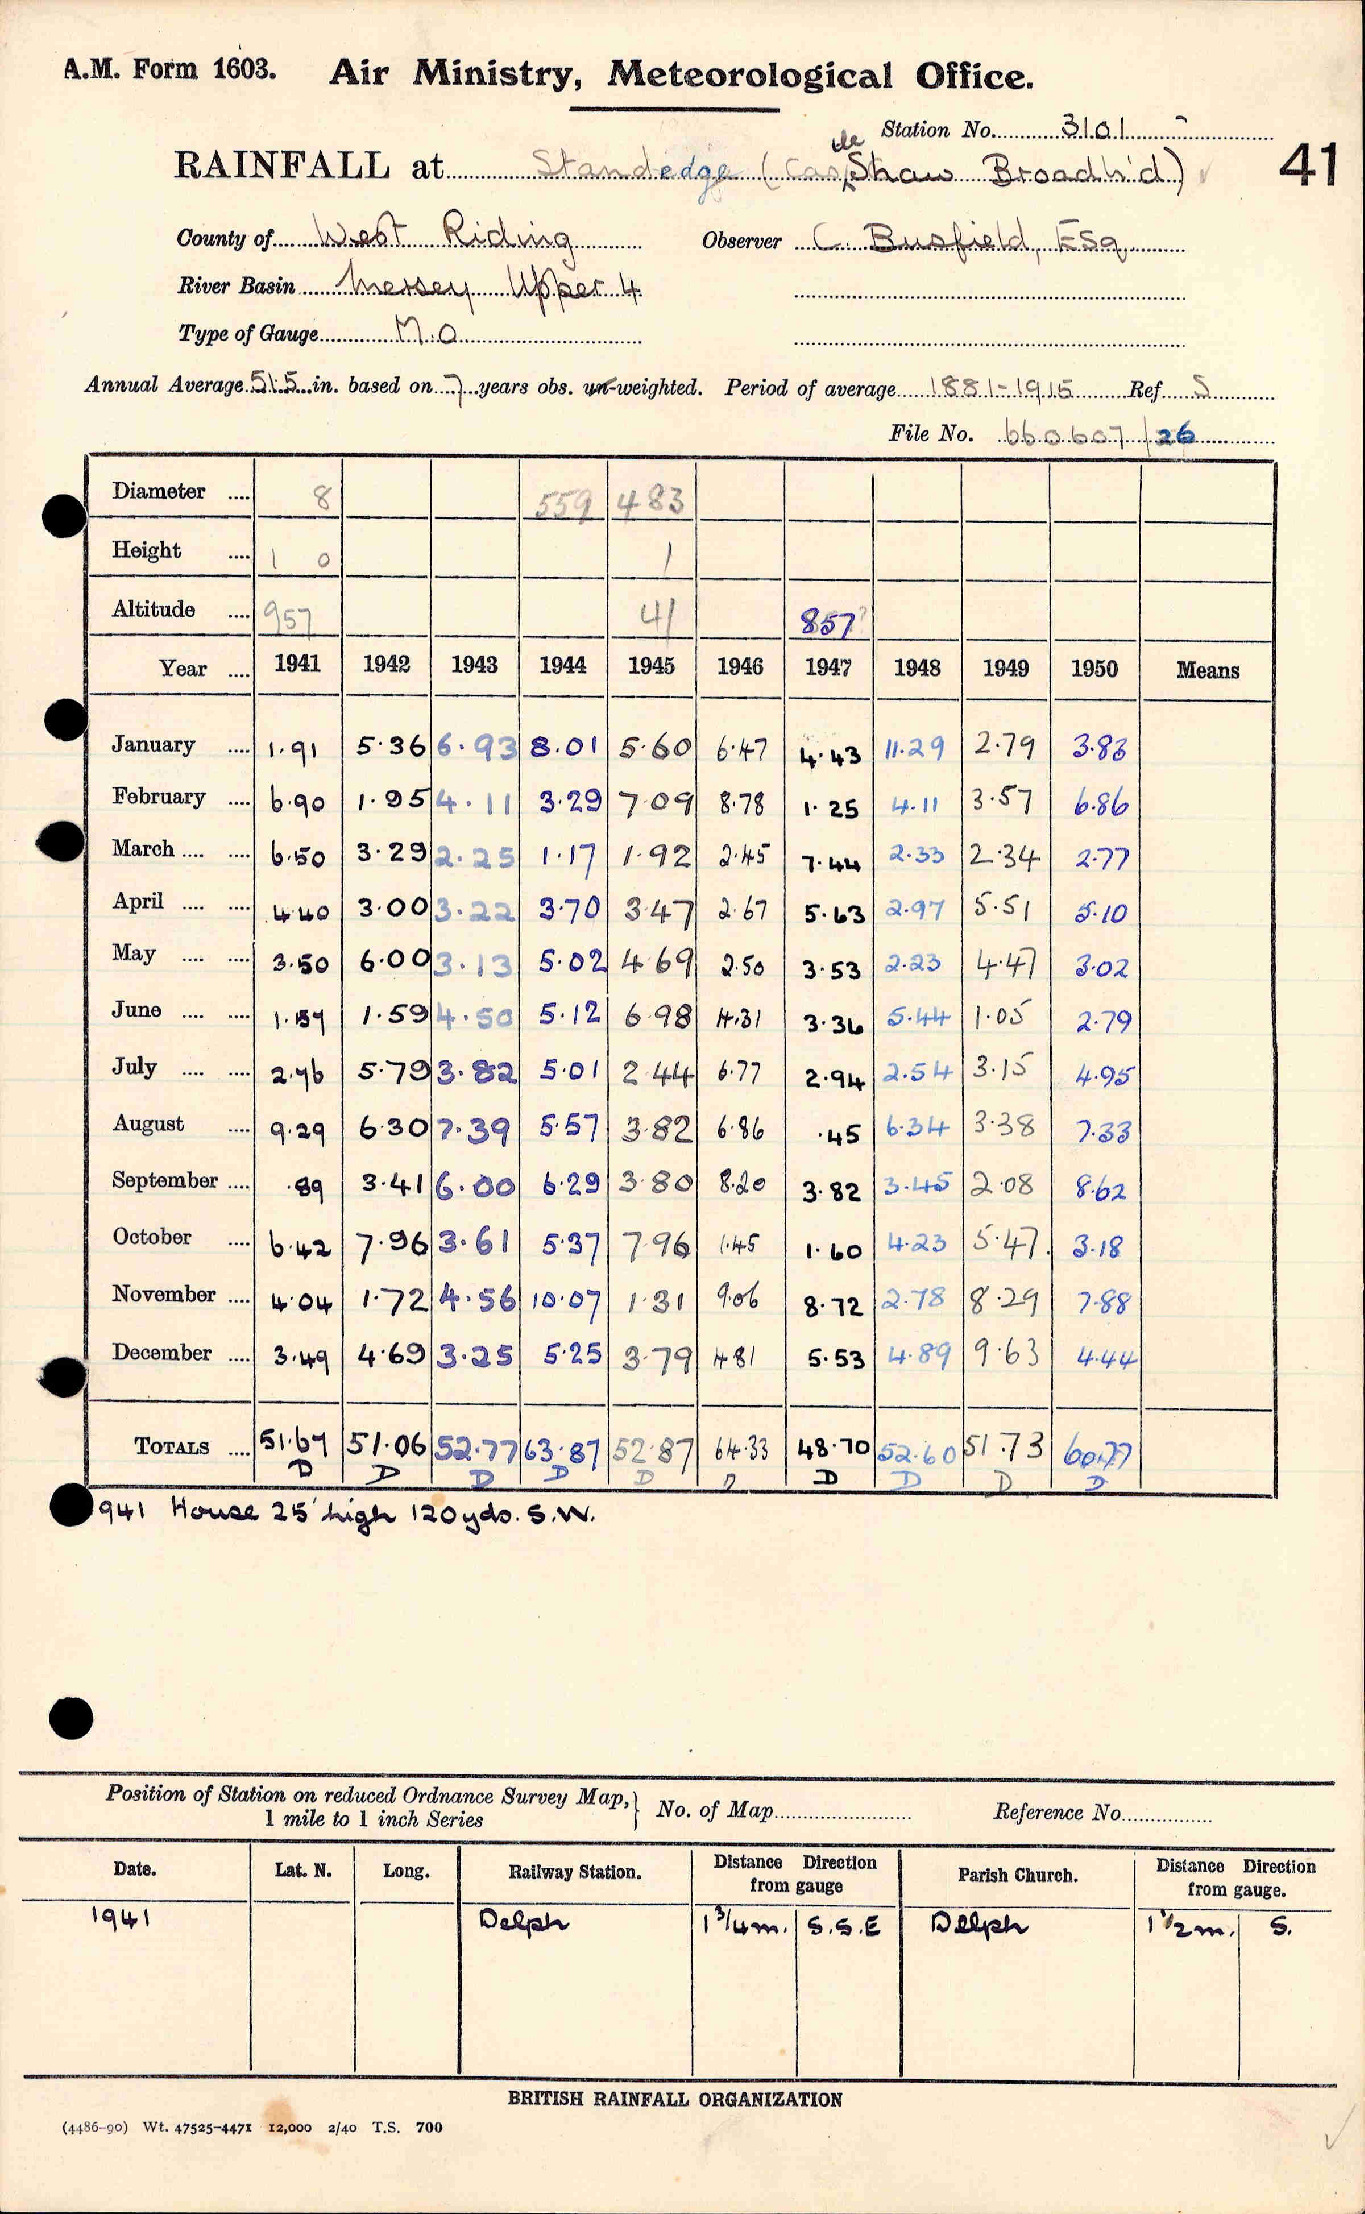 A.M. Form 1603. Air Ministry, Meteorological Office.
Station No. 3101
RAINFALL at Standedge (Castle Shaw Broadh'd) 41
County of West Riding Observer C. Busfield, Esq
River Basin Mersey Upper 4
Type of Gauge M.O
Annual Average 51.5 in. based on 7 years obs. un-weighted. Period of average 1881-1915 Ref S
File No. 660607/26
Diameter .... 8 559 483
Height .... 1 0 1
Altitude .... 957 41 857?
Year .... 1941 1942 1943 1944 1945 1946 1947 1948 1949 1950 Means
January .... 1.91 5.36 6.93 8.01 5.60 6.47 4.43 11.29 2.79 3.83
February .... 6.90 1.95 4.11 3.29 7.09 8.78 1.25 4.11 3.57 6.86
March .... .... 6.50 3.29 2.25 1.17 1.92 2.45 7.44 2.33 2.34 2.77
April .... .... 4.40 3.00 3.22 3.70 3.47 2.67 5.63 2.97 5.51 5.10
May .... .... 3.50 6.00 3.13 5.02 4.69 2.50 3.53 2.23 4.47 3.02
June .... .... 1.59 4.50 5.12 6.98 4.31 3.36 5.44 1.05 2.79
July .... .... 5.79 3.82 5.01 2.44 6.77 2.94 2.54 3.15 4.95
August .... 9.29 6.30 7.39 5.57 3.82 6.86 .45 6.34 3.38 7.33
September .... .89 3.41 6.00 6.29 3.80 8.20 3.82 3.45 2.08 8.62
October .... 6.42 7.96 3.61 5.37 7.96 1.45 1.60 4.23 5.47 3.18
November .... 4.04 1.72 4.56 10.07 1.31 9.06 8.72 2.78 8.29 7.88
December .... 3.49 4.69 3.25 5.25 3.79 4.81 5.53 4.89 9.63 4.44
TOTALS .... 51.67 51.06 52.77 63.87 52.87 64.33 48.70 52.60 51.73 60.77
D D D D D D D D D D
941 House 25' high 120 yds. S.W.
Position of Station on reduced Ordnance Survey Map, } No. of Map Reference No.
1 mile to 1 inch Series
Date. Lat. N. Long. Railway Station. Distance Direction from gauge Parish Church. Distance Direction from gauge.
1941 Delph 1 3/4 m. S.S.E Delph 1 1/2 m. S.
BRITISH RAINFALL ORGANIZATION
(4486-90) Wt. 47525-4471 12,000 2/40 T.S. 700